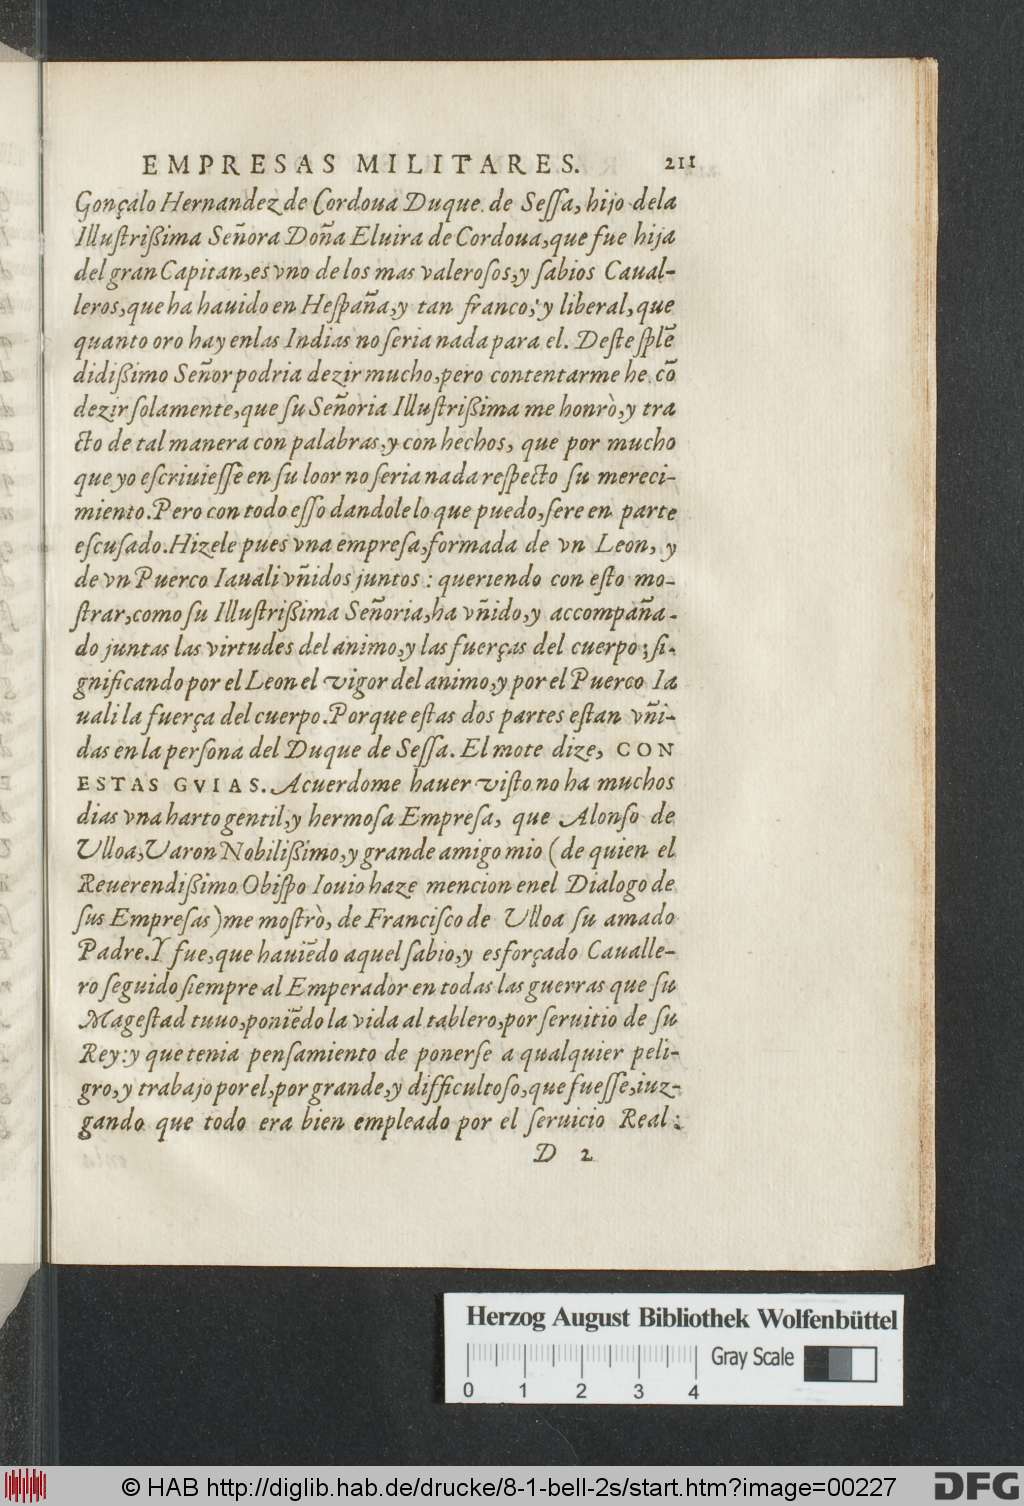 EMPRESAS MILITARES. 211
Gonçalo Hernandez de Cordoua Duque de Seſſa, hijo dela
Illuſtrißima Señora Doña Eluira de Cordoua, que fue hija
del gran Capitan, es vno de los mas valeroſos, y ſabios Caual-
leros, que ha hauido en Heſpaña, y tan franco, y liberal, que
quanto oro hay enlas Indias no ſeria nada para el. Deſte ſplẽ
didißimo Señor podria dezir mucho, pero contentarme he cõ
dezir ſolamente, que ſu Señoria Illuſtrißima me honrò, y tra
cto de tal manera con palabras, y con hechos, que por mucho
que yo eſcriuieſſe en ſu loor no ſeria nada reſpecto ſu mereci-
miento. Pero con todo eſſo dandole lo que puedo, ſere en parte
eſcuſado. Hizele pues vna empreſa, formada de vn Leon, y
de vn Puerco Iauali vñidos juntos: queriendo con eſto mo-
ſtrar, como ſu Illuſtrißima Señoria, ha vñido, y accompaña-
do juntas las virtudes del animo, y las fuerças del cuerpo; ſi-
gnificando por el Leon el vigor del animo, y por el Puerco Ia
uali la fuerça del cuerpo. Porque eſtas dos partes eſtan vñi-
das en la perſona del Duque de Seſſa. El mote dize, CON
ESTAS GVIAS. Acuerdome hauer viſto no ha muchos
dias vna harto gentil, y hermoſa Empreſa, que Alonſo de
Ulloa, Varon Nobilißimo, y grande amigo mio (de quien el
Reuerendißimo Obiſpo Iouio haze mencion enel Dialogo de
ſus Empreſas) me moſtrò, de Franciſco de Ulloa ſu amado
Padre. Y fue, que hauiẽdo aquel ſabio, y esforçado Cauallе-
ro ſeguido ſiempre al Emperador en todas las guerras que ſu
Mageſtad tuuo, poniẽdo la vida al tablero, por ſeruitio de ſu
Rey: y que tenia penſamiento de ponerſe a qualquier peli-
gro, y trabajo por el, por grande, y difficultoſo, que fueſſe, iuz-
gando que todo era bien empleado por el ſeruicio Real:
D 2
Herzog August Bibliothek Wolfenbüttel
Gray Scale
0 1 2 3 4
© HAB http://diglib.hab.de/drucke/8-1-bell-2s/start.htm?image=00227
DFG